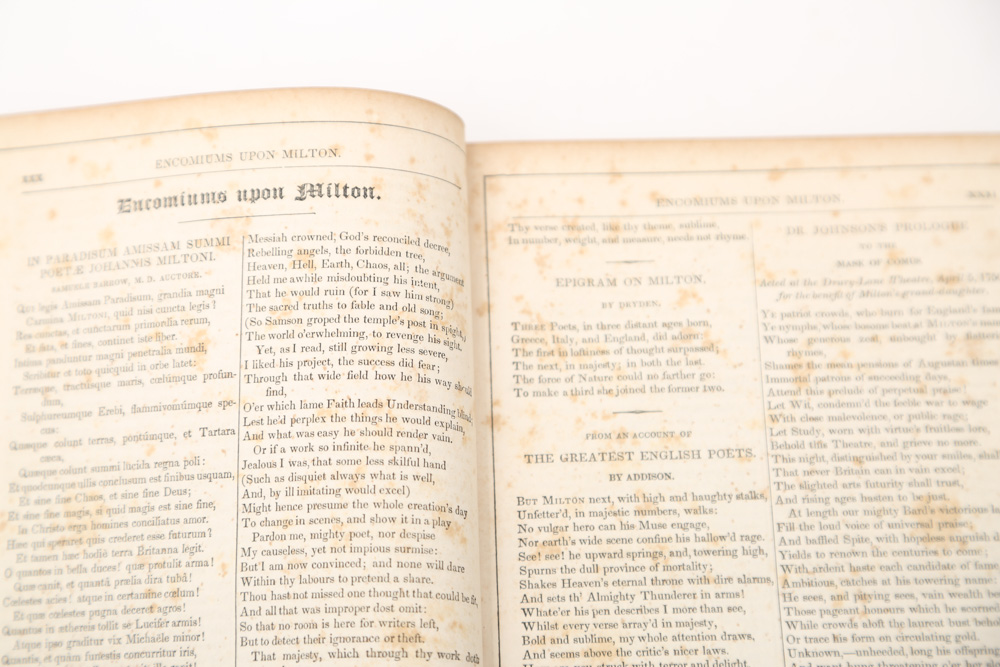 xxx
ENCOMIUMS UPON MILTON.
Encomiums upon Milton.
IN PARADISUM AMISSAM SUMMI
POETÆ JOHANNIS MILTONI.
SAMUELE BARROW, M. D. AUCTORE.
Qui legis Amissam Paradisum, grandia magni
Carmina MILTONI, quid nisi cuncta legis?
Res cunctas, et cunctarum primordia rerum,
Et fata, et fines, continet iste liber.
Intima panduntur magni penetralia mundi,
Scribitur et toto quicquid in orbe latet:
Terræque, tractusque maris, cœlumque profun-
dum,
Sulphureumque Erebi, flammivomúmque spe-
cus:
Quæque colunt terras, pontúmque, et Tartara
cæca,
Quæque colunt summi lucida regna poli:
Et quodcunque ullis conclusum est finibus usquam,
Et sine fine Chaos, et sine fine Deus;
Et sine fine magis, si quid magis est sine fine,
In Christo erga homines conciliatus amor.
Hæc qui speraret quis crederet esse futurum?
Et tamen hæc hodiè terra Britanna legit.
O quantos in bella duces! quæ protulit arma!
Quæ canit, et quantâ prælia dira tubâ!
Cœlestes acies! atque in certamine cœlum!
Et quæ cœlestes pugna deceret agros!
Quantus in æthereis tollit se Lucifer armis!
Atque ipso graditur vix Michaële minor!
Quantis, et quàm funestis concurritur iris,
Messiah crowned; God's reconciled decree,
Rebelling angels, the forbidden tree,
Heaven, Hell, Earth, Chaos, all; the argument
Held me awhile misdoubting his intent,
That he would ruin (for I saw him strong)
The sacred truths to fable and old song;
(So Samson groped the temple's post in spight,)
The world o'erwhelming, to revenge his sight.
Yet, as I read, still growing less severe,
I liked his project, the success did fear;
Through that wide field how he his way should
find,
O'er which lame Faith leads Understanding blind;
Lest he'd perplex the things he would explain,
And what was easy he should render vain.
Or if a work so infinite he spann'd,
Jealous I was, that some less skilful hand
(Such as disquiet always what is well,
And, by ill imitating would excel)
Might hence presume the whole creation's day
To change in scenes, and show it in a play
Pardon me, mighty poet, nor despise
My causeless, yet not impious surmise:
But I am now convinced; and none will dare
Within thy labours to pretend a share.
Thou hast not missed one thought that could be fit,
And all that was improper dost omit:
So that no room is here for writers left,
But to detect their ignorance or theft.
That majesty, which through thy work doth
ENCOMIUMS UPON MILTON.
Thy verse created, like thy theme, sublime,
In number, weight, and measure, needs not rhyme
EPIGRAM ON MILTON.
BY DRYDEN.
THREE Poets, in three distant ages born,
Greece, Italy, and England, did adorn:
The first in loftiness of thought surpassed;
The next, in majesty; in both the last
The force of Nature could no farther go:
To make a third she joined the former two.
FROM AN ACCOUNT OF
THE GREATEST ENGLISH POETS.
BY ADDISON.
BUT MILTON next, with high and haughty stalks,
Unfetter'd, in majestic numbers, walks:
No vulgar hero can his Muse engage,
Nor earth's wide scene confine his hallow'd rage.
See! see! he upward springs, and, towering high,
Spurns the dull province of mortality;
Shakes Heaven's eternal throne with dire alarms,
And sets th' Almighty Thunderer in arms!
Whate'er his pen describes I more than see,
Whilst every verse array'd in majesty,
Bold and sublime, my whole attention draws,
And seems above the critic's nicer laws.
DR JOHNSON'S PROLOGUE
TO THE
MASK OF COMUS
Acted at the Drury-Lane Theatre, April 5,
for the benefit of Milton's grand-daughter.
Ye patriot crowds, who burn for England's
Ye nymphs, whose
Whose generous zeal,
rhymes,
Shames the mean pensions of Augustan times
Immortal patrons of succeeding days,
Attend this prelude of perpetual praise;
Let Wit, condemn'd the feeble war to wage
With close malevolence, or public rage;
Let Study, worn with virtue's fruitless lore,
Behold this Theatre, and grieve no more.
This night, distinguished by your smiles,
That never Britain can in vain excel;
The slighted arts futurity shall trust,
And rising ages hasten to be just.
At length our mighty Bard's victorious
Fill the loud voice of universal praise;
And baffled Spite, with hopeless anguish
Yields to renown the centuries to come;
With ardent haste each candidate of fame
Ambitious, catches at his towering name:
He sees, and pitying sees, vain wealth
Those pageant honours which he scorned
While crowds aloft the laureat bust
Or trace his form on circulating gold.
Unknown,—unheeded, long his offspring